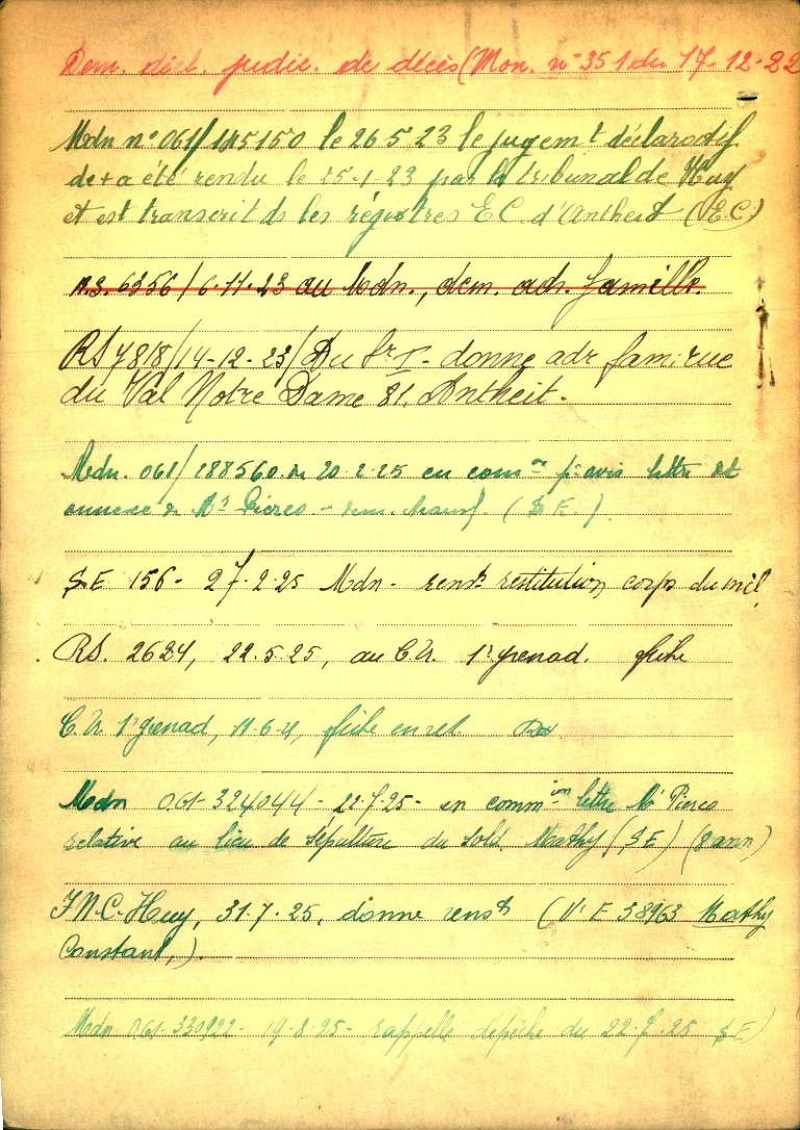 Dem. décl. judic. de décès (Mon. n° 351 du 17-12-22
Mdn n° 061/145150 le 26 5 23 le jugemt déclaratif
de + a été rendu le 25-1 23 par le tribunal de Huy
et est transcrit ds les registres E C. d'Antheit (E.C)
R.S. 6356/6-11-23 au Mdn., dem. adr. famille.
RS 7818/14-12-23/Du Sr I - donne adr fam: rue
du Val Notre Dame 81. Antheit.
Mdn. 061/288560 du 20-2-25 en comon pr avis lettre et
annexe de Mr Pierco - dem. (S E.).
S.E 156 - 27.2.25 Mdn - rensts restitution corps du mil.
RS. 2624, 22.5.25, au C.A. 1r grenad. fiche
C. A. 1r grenad, 11-6-4, fiche en ret.
Mdn 061-324044 - 22-7-25 - en commion lettre Mr Pierco
relative au lieu de sépulture du Sold. Mathy (S E) (8 ann)
Huy, 31.7.25, donne rensts (Vr E 38963 Mathy
Constant,).
Mdn 061-330922 - 19-8-25 - rappelle dépêche du 22-7-25 S E)